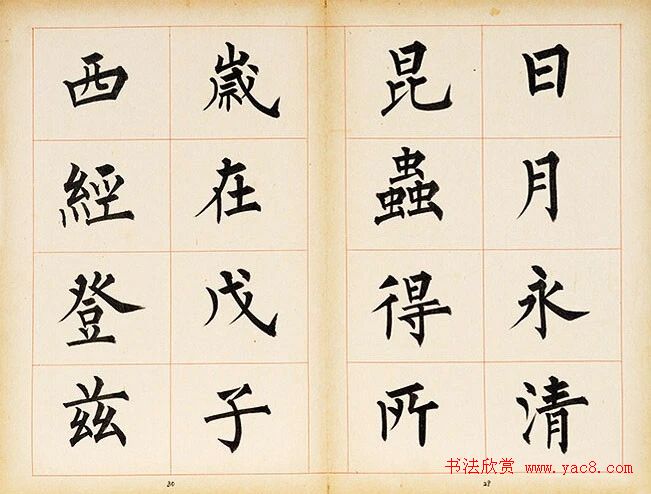 日月永清
昆蟲得所
歲在戊子
西經登兹
30
29
书法欣赏 www.yac8.com